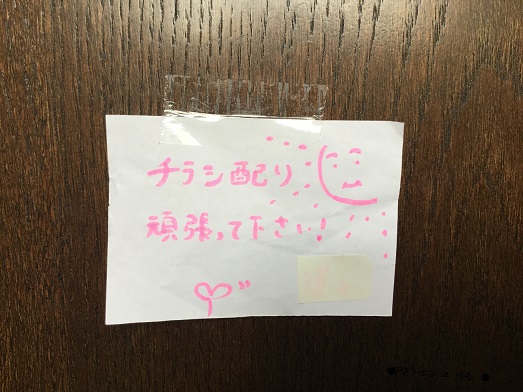 チラシ配り
頑張って下さい!